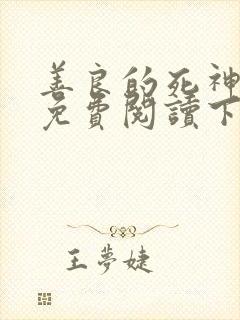 善良的死神
免費閱讀下
王夢婕